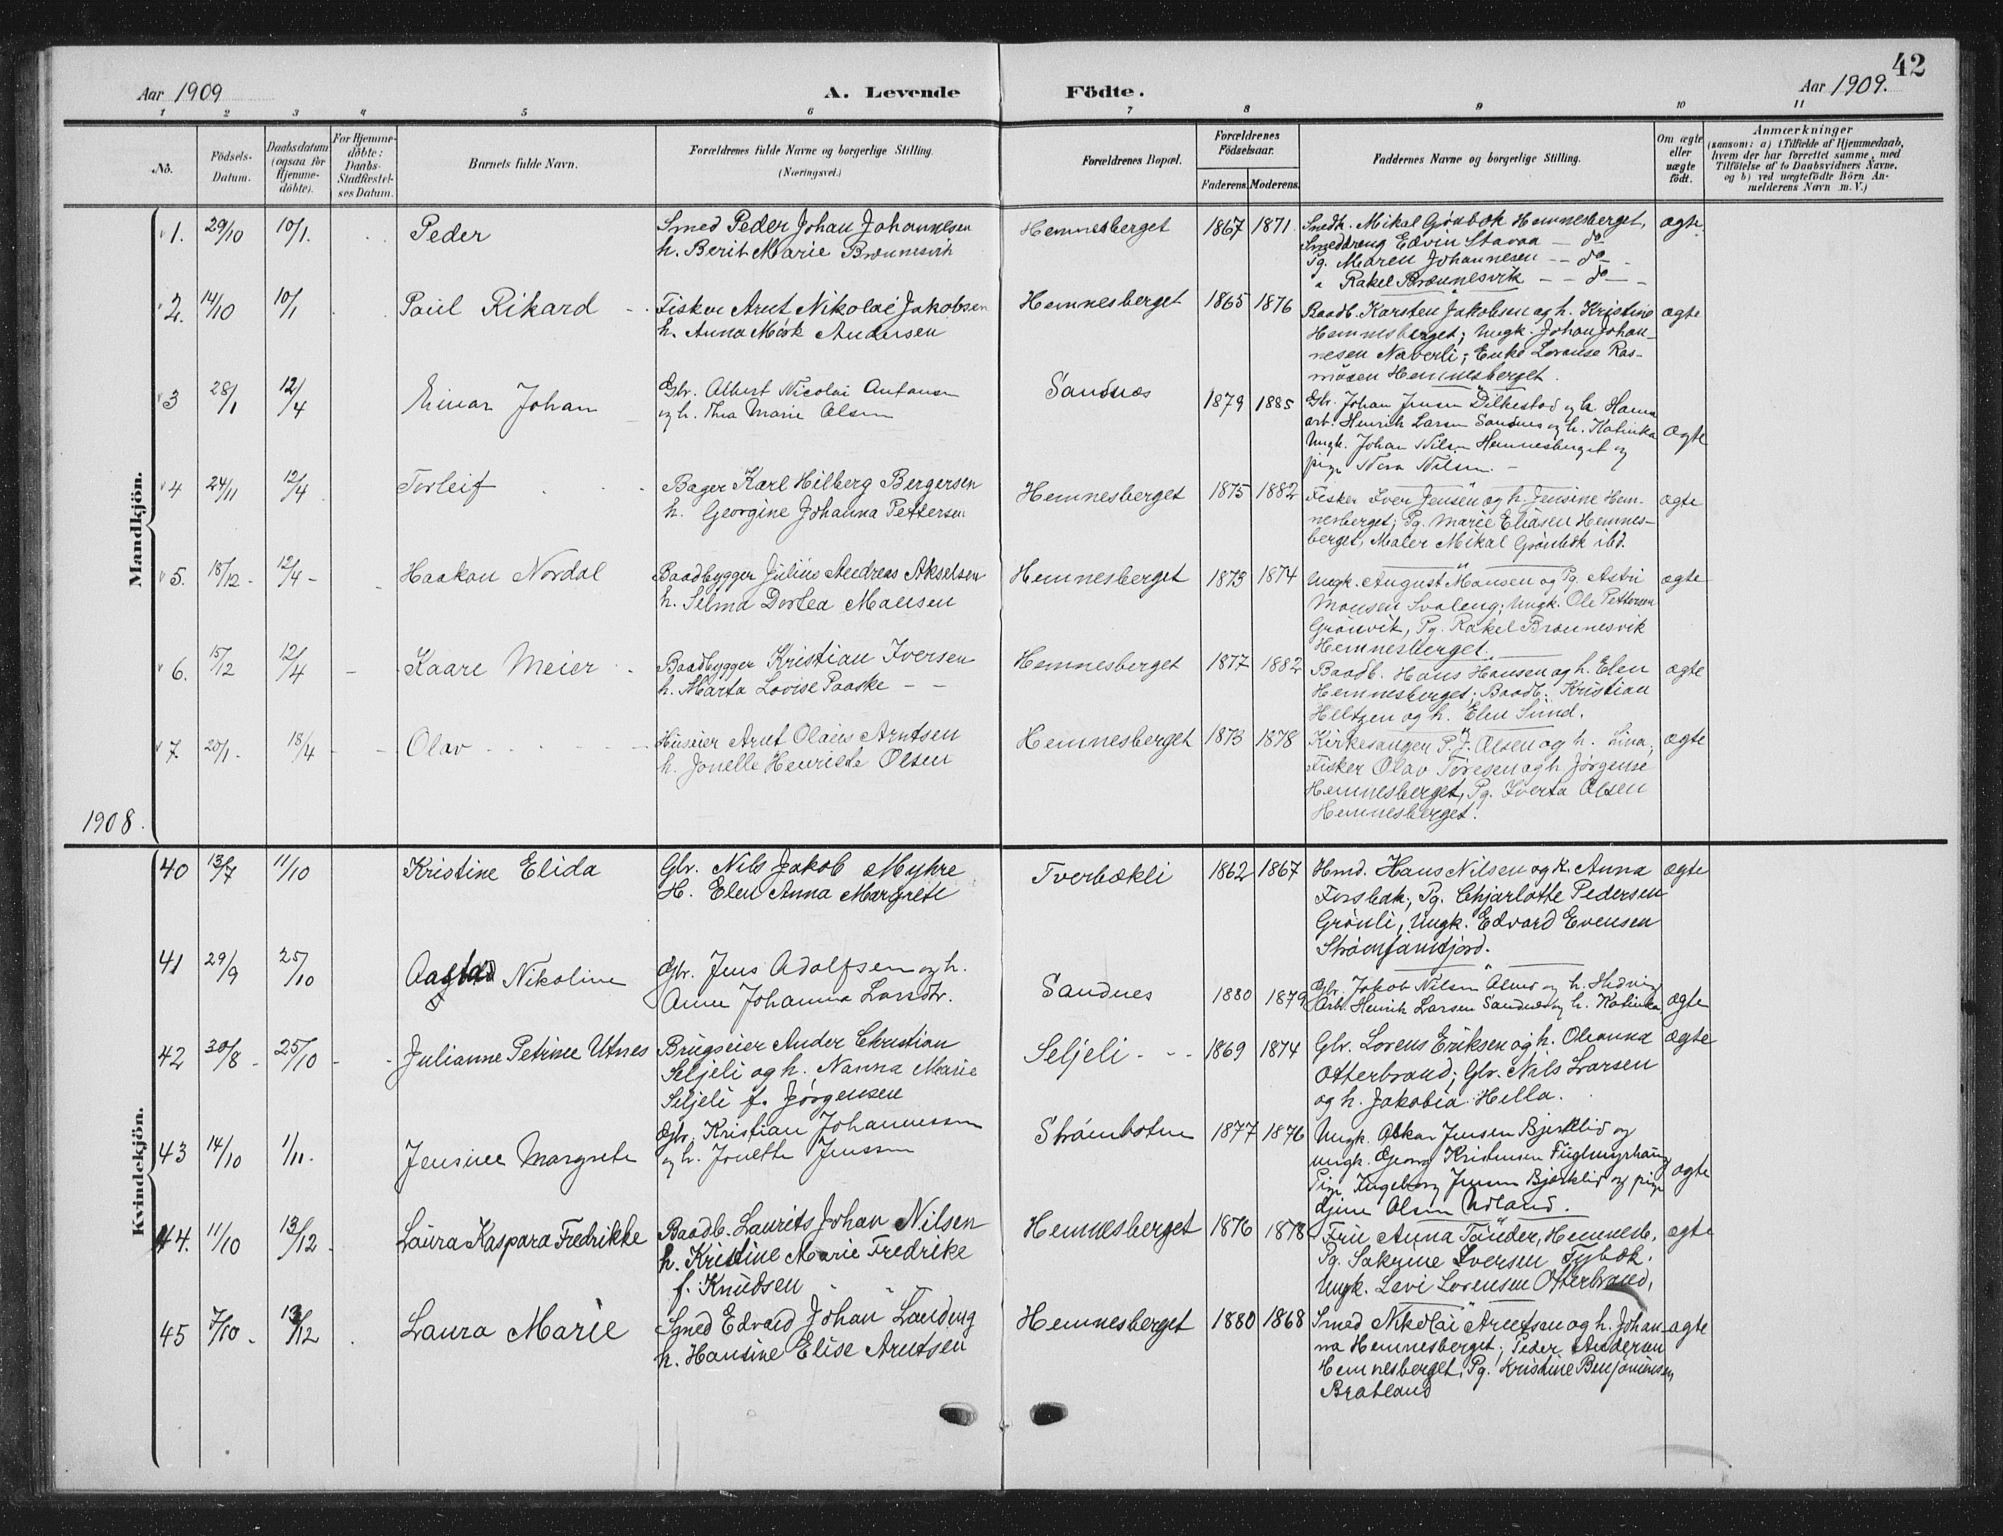 42
Aar 1909
A. Levende Födte.
Aar 1909.
1 2 3 4 5 6 7 8 9 10 11
No.
Födsels-Datum.
Daabsdatum (ogsaa for Hjemme-döbte).
For Hjemme-döbte: Daabs-Stadfæstel-ses Datum.
Barnets fulde Navn.
Forældrenes fulde Navne og borgerlige Stilling.
(Næringsvei.)
Forældrenes Bopæl.
Forældrenes Födselsaar.
Faderens. Moderens.
Faddernes Navne og borgerlige Stilling.
Om ægte eller uægte födt.
Anmærkninger
(saasom: a) i Tilfælde af Hjemmedaab, hvem der har forrettet samme, med Tilföielse af to Daabsvidners Navne, og b) ved uægtefödte Börn An-melderens Navn m. V.)
Mandkjön.
1. 29/10 10/1. Peder
Smed Peder Johan Johannesen
h. Berit Marie Brænnesvik
Hemnesberget 1867 1871
Smedk. Mikal Grønbæk Hemnesberget,
Smeddreng Edvin Stavaa — do
Pg. Maren Johannesen — — do —
" Rakel Brænnesvik — — do —
ægte
2. 14/10 10/1 Paul Rikard
Fisker Arnt Nikolai Jakobsen
h. Anna Mørk Andersen
Hemnesberget 1865 1876
Baadb. Karsten Jakobsen og h. Kristine
Hemnesberget; Ungk. Johan Johan-
nesen Naverli; Enke Lovense Ras-
musen Hemnesberget.
ægte
3 28/1 12/4 Einar Johan
Gbr. Albert Nicolai Antonsen
og h. Thea Marie Olsen
Sandnes 1879 1885
Gbr. Johan Jensen Dilkestad og h. Hanna
arb. Henrik Larsen Sandnes og h. Katinka
Ungk. Johan Nilsen Hemnesberget og
pige Nora Nilsen. —
ægte
4 24/11 12/4 Torleif
Bager Karl Hilberg Bergersen
h. Georgine Johanna Pettersen
Hemnesberget 1875 1882
Fisker Iver Jensen og h. Jensine Hem-
nesberget; Pg. Marie Eliasen Hemnes-
berget, Maler Mikal Grønbæk ibd.
ægte
5. 18/12 12/4 Haakon Nordal
Baadbygger Julius Andreas Akselsen
h. Selma Dortea Mansen
Hemnesberget 1873 1874
Ungk. August Mansen og Pg. Astri
Monsen Svaleng; Ungk. Ole Pettersen
Grønvik, Pg. Rakel Brænnesvik
Hemnesberget.
ægte
6. 15/12 12/4 Kaare Meier
Baadbygger Kristian Iversen
h. Marta Lovise Paaske — —
Hemnesberget 1877 1882
Baadb. Hans Hansen og h. Elen
Hemnesberget; Baadb. Kristian
Heltzen og h. Elen Sund.
ægte
7. 20/1 18/4 Olav
Huseier Arnt Olaus Arntsen
h. Jonelle Henriette Olsen
Hemnesberget 1873 1878
Kirkesanger P. J. Olsen og h. Lina,
Fisker Olav Toresen og h Jørgense
Hemnesberget, Pg. Iverta Olsen
Hemnesberget.
ægte
1908.
Kvindekjön.
40 13/7 11/10 Kristine Elida
Gbr. Nils Jakob Myhre
H. Elen Anna Margrete
Tverbækli 1862 1867
Hmd. Hans Nilsen og K. Anna
Forsbak, Pg. Chjarlotte Pedersen
Grønli, Ungk. Edvard Evensen
Strømfamfjord.
ægte
41 29/9 25/10 Aagtad Nikoline
Gbr. Jens Adolfsen og h.
Anne Johanna Larsdtr.
Sandnes 1880 1879
Gbr. Jakob Nilsen Alma og h. Hedvig
Arb. Henrik Larsen Sandnes og h. Katinka
ægte
42 30/8 25/10 Julianne Petrine Utnes
Brugseier Ander Christian
Seljeli og h. Nanna Marie
Seljeli f. Jørgensen
Seljeli 1869 1874
Gbr. Lorens Eriksen og h. Oleanna
Otterbrand; Gbr. Nils Larsen
og h. Jakobia Hella.
ægte
43 14/10 1/11. Jensine Margrete
Gbr. Kristian Johannessen
og h. Jonette Jenssen
Strømbotn 1877 1876
Ungk. Oskar Jensen Bjerklid og
ungk. Georg Kristensen Fuglmyrhaug
Pige Ingeborg Jensen Bjerklid og pige
Olsen Udland.
ægte
44. 11/10 13/12 Laura Kaspara Fredrikke
Baadb. Laurits Johan Nilsen
h. Kristine Marie Fredrike
f. Knudsen
Hemnesberget 1876 1878
Fru Anna Tønder, Hemnesb.
Pg. Sakrine Iversen Fybæk,
Ungk. Levi Lorensen Otterbrand,
ægte
45 7/10 13/12 Laura Marie
Smed Edvard Johan Landeng
h. Hansine Elise Arntsen
Hemnesberget 1880 1868
Smed Nikolai Arntsen og h. Johan-
na Hemnesberget; Peder Andersen
Hemnesberget, Pg. Kristine Benjaminsen
Bratland
ægte